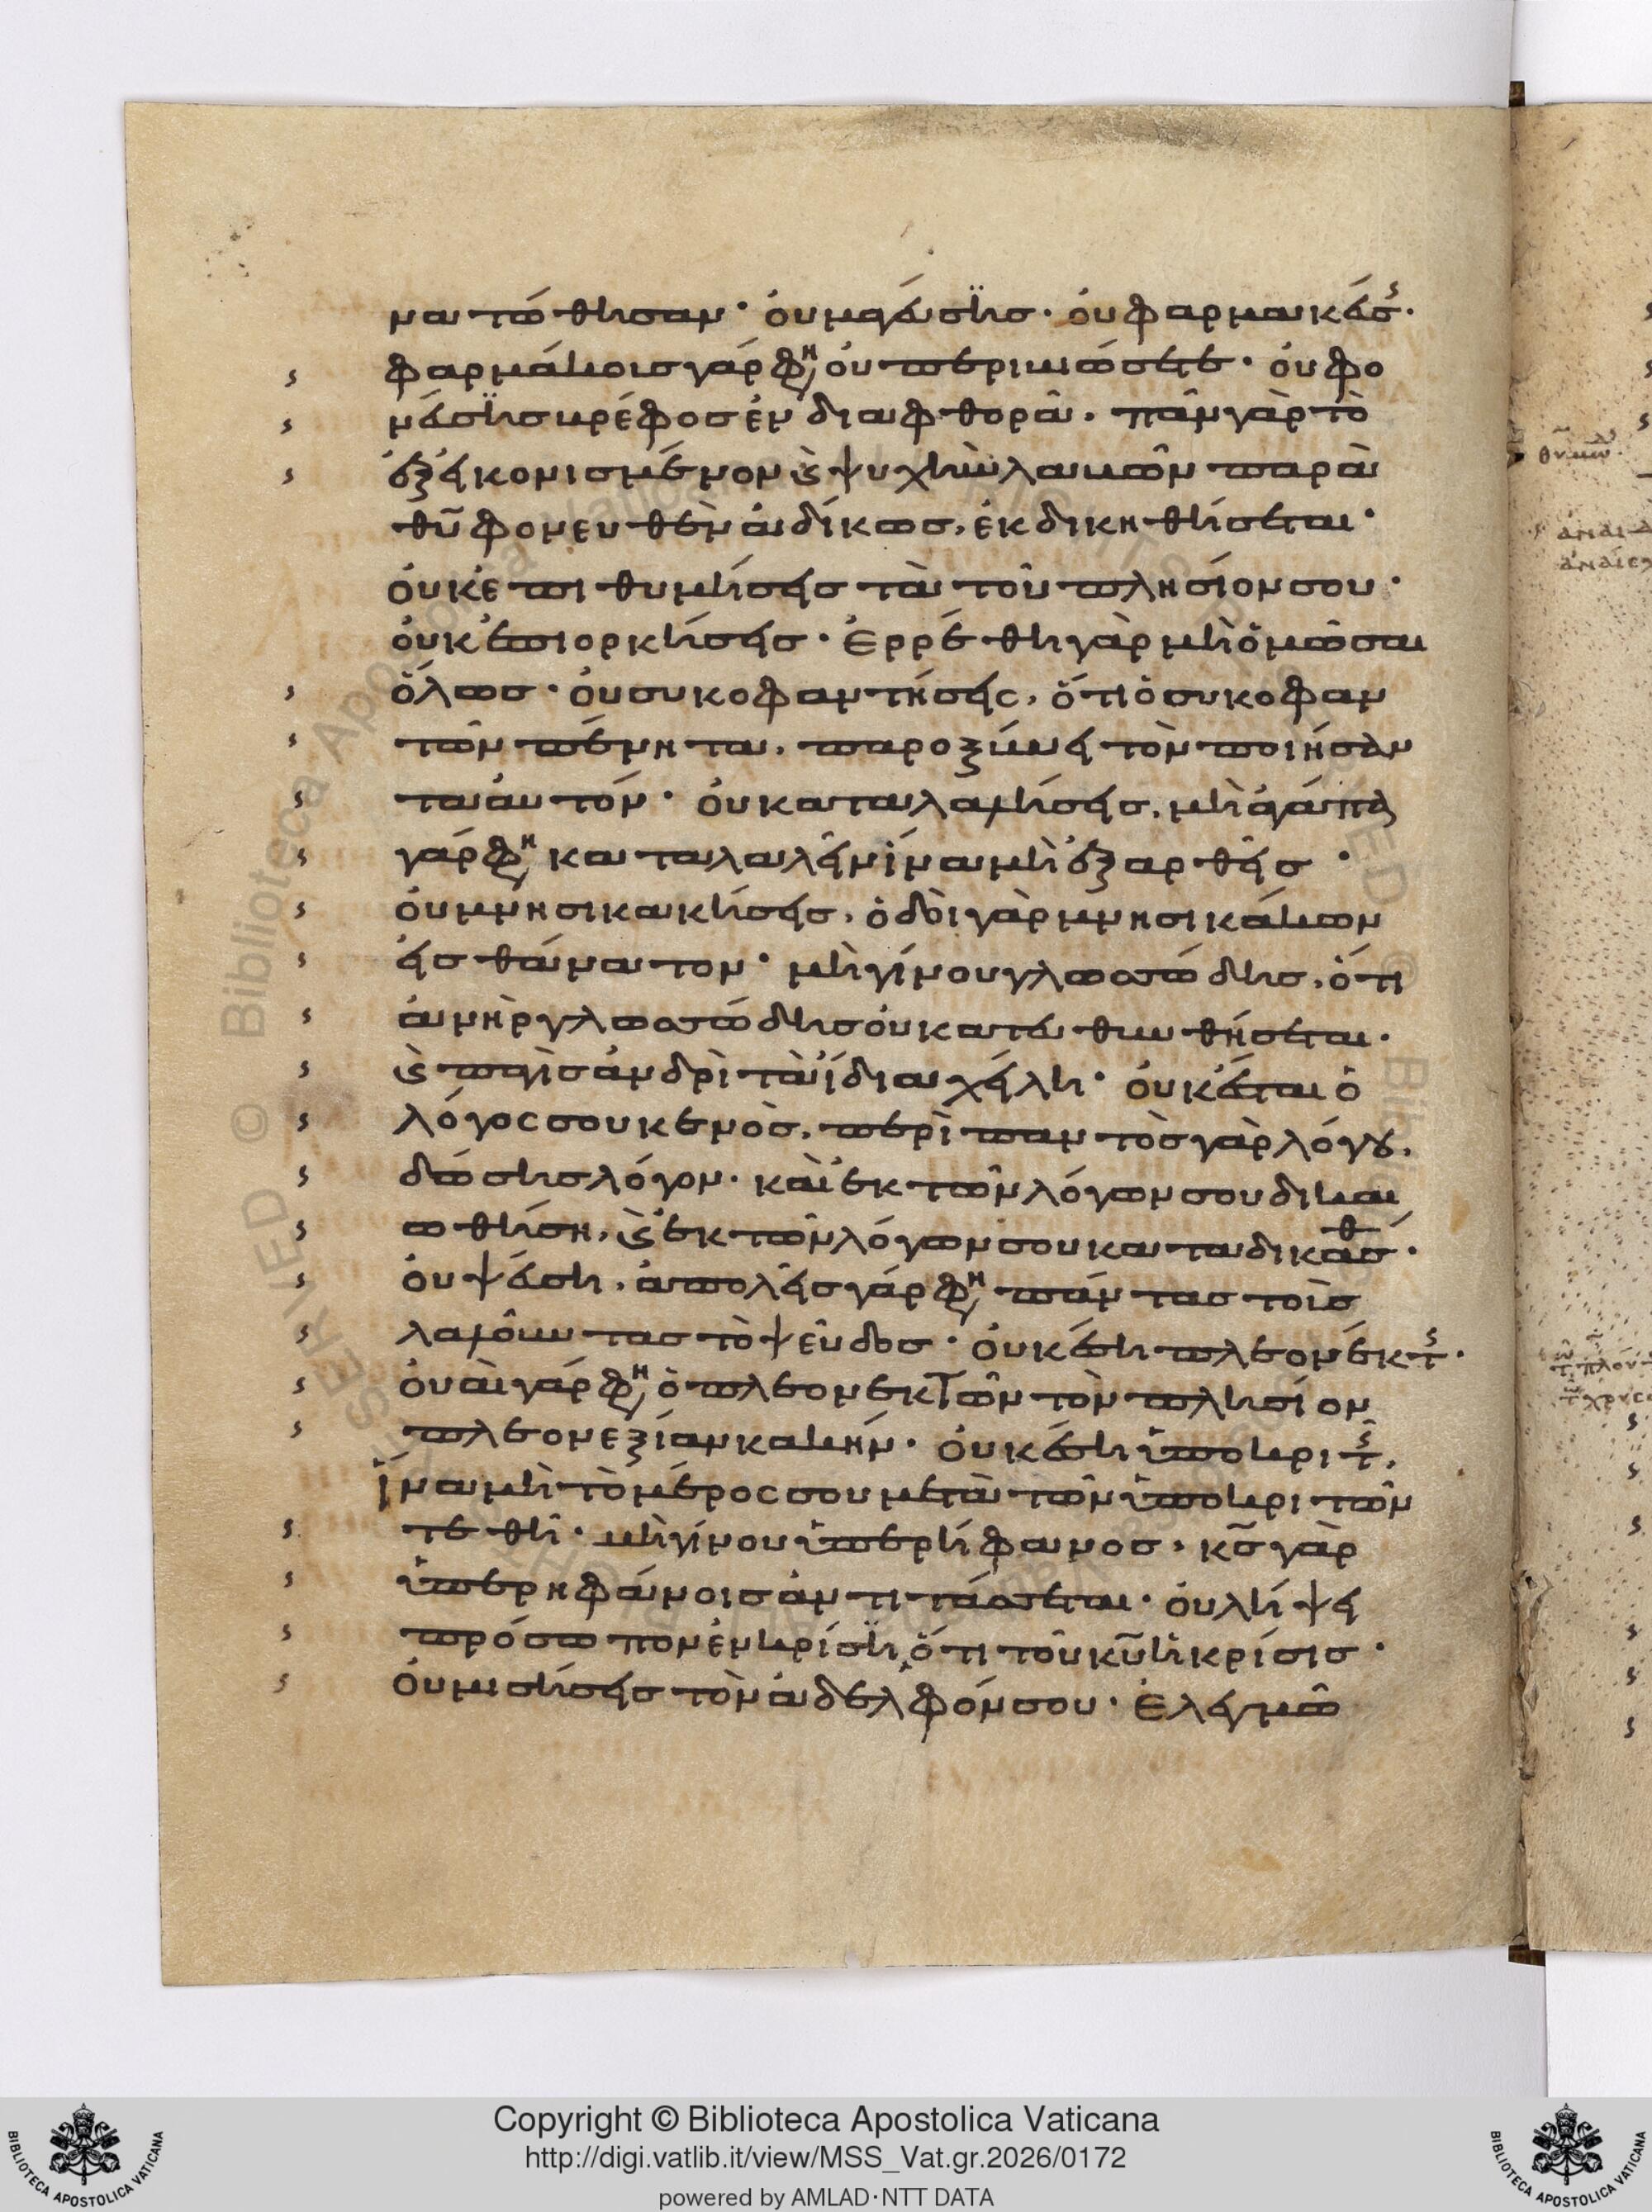 ματώθησαν· οὐ μαγεύσεις· οὐ φαρμακεύσ·
φαρμάκοις γάρ φη οὐ περιβιώσετε· οὐ φο
νεύσεις βρέφος ἐν διαφθορᾶ. πᾶν γὰρ τὸ
ἐξεικονισμένον ϗ ψυχὴν λαβῶν παρὰ
θῡ φονευθὲν ἀδίκως, ἐκδικηθήσεται·
οὐκ ἐπιθυμήσεις τὰ τοῦ πλησίον σου·
οὐκ ἐπιορκήσεις· Ἐρρέθη γὰρ μὴ ὀμῶσαι
ὅλως· οὐ συκοφαντήσεις, ὅτι ὁ συκοφαν
τῶν πένητα, παροξύνει τὸν ποιήσαν
τα αὐτόν· οὐ καταλαλήσεις, μὴ ἀγάπα
γάρ φη καταλαλεῖν ἵνα μὴ ἐξαρθεῖς·
οὐ μνησικακήσεις, ὁδοὶ γὰρ μνησικάκων
εἰς θάνατον· μὴ γίνου γλωσσώδης, ὅτι
ἀνὴρ γλωσσώδης οὐ κατευθυνθήσεται.
ϗ παγὶς ἀνδρὶ τὰ ἴδια χείλη· οὐκ ἔσται ὁ
λόγος σου κενὸς, περὶ παντὸς γὰρ λόγου,
δώσεις λόγον· καὶ ἐκ τῶν λόγων σου δικαι
ωθήση, ϗ ἐκ τῶν λόγων σου καταδικασθ·
οὐ ψεύση, ἀπολεῖς γάρ φη πάντας τοὺς
λαλοῦντας τὸ ψεῦδος· οὐκ ἔση πλεονέκτ·
οὐαὶ γάρ φη ὁ πλεονεκτῶν τὸν πλησίον
πλεονεξίαν κακήν· οὐκ ἔση ὑποκριτ,
ἵνα μὴ τὸ μέρος σου μετὰ τῶν ὑποκριτῶν
τεθῆ· μὴ γίνου ὑπερήφανος, κς̄ γὰρ
ὑπερηφάνοις ἀντιτάσσεται· οὐ λήψει
πρόσωπον ἐν κρίσει, ὅτι τοῦ κῡ ἡ κρίσις·
οὐ μισήσεις τὸν ἀδελφόν σου· Ἐλεγμῶ
Copyright © Biblioteca Apostolica Vaticana
http://digi.vatlib.it/view/MSS_Vat.gr.2026/0172
powered by AMLAD·NTT DATA
BIBLIOTECA APOSTOLICA VATICANA
BIBLIOTECA APOSTOLICA VATICANA